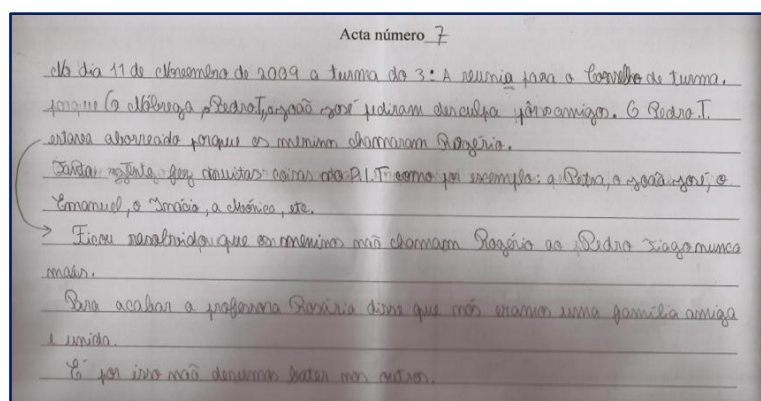 Acta número 7
No dia 11 de Novembro de 2009 a turma do 3º A reuniu para o Conselho de turma.
porque o Nóbrega, Pedro T, o João José pediram desculpa amigos. O Pedro T.
estava aborrecido porque os meninos chamaram Rogério.
gente fez muitas coisas no P.I.T como por exemplo: a Petra, o João José, o
Emanuel, o Inácio, a Mónica, etc.
Ficou que os meninos não chamam Rogério ao Pedro Tiago nunca
mais.
Para acabar a professora Rosária disse que nós eramos uma família amiga
e unida.
E por isso não devemos bater nos outros.